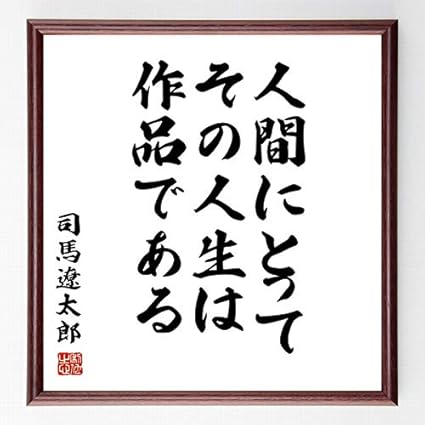 人間にとって
その人生は
作品である
司馬遼太郎